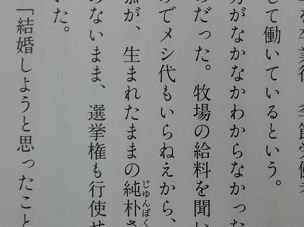 して働いているという。
がなかなかわからなかった
のだった。牧場の給料を聞い
でメシ代もいらねえから、
が、生まれたままの純朴さ
じゅんぼく
ないまま、選挙権も行使せ
た。
「結婚しようと思ったこと